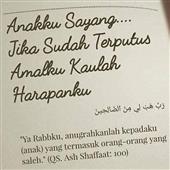 Anakku Sayang....
Jika Sudah Terputus
Amalku Kaulah
Harapanku
رَبِّ هَبْ لِي مِنَ الصَّالِحِينَ
"Ya Rabbku, anugrahkanlah kepadaku
(anak) yang termasuk orang-orang yang
saleh." (QS. Ash Shaffaat: 100)